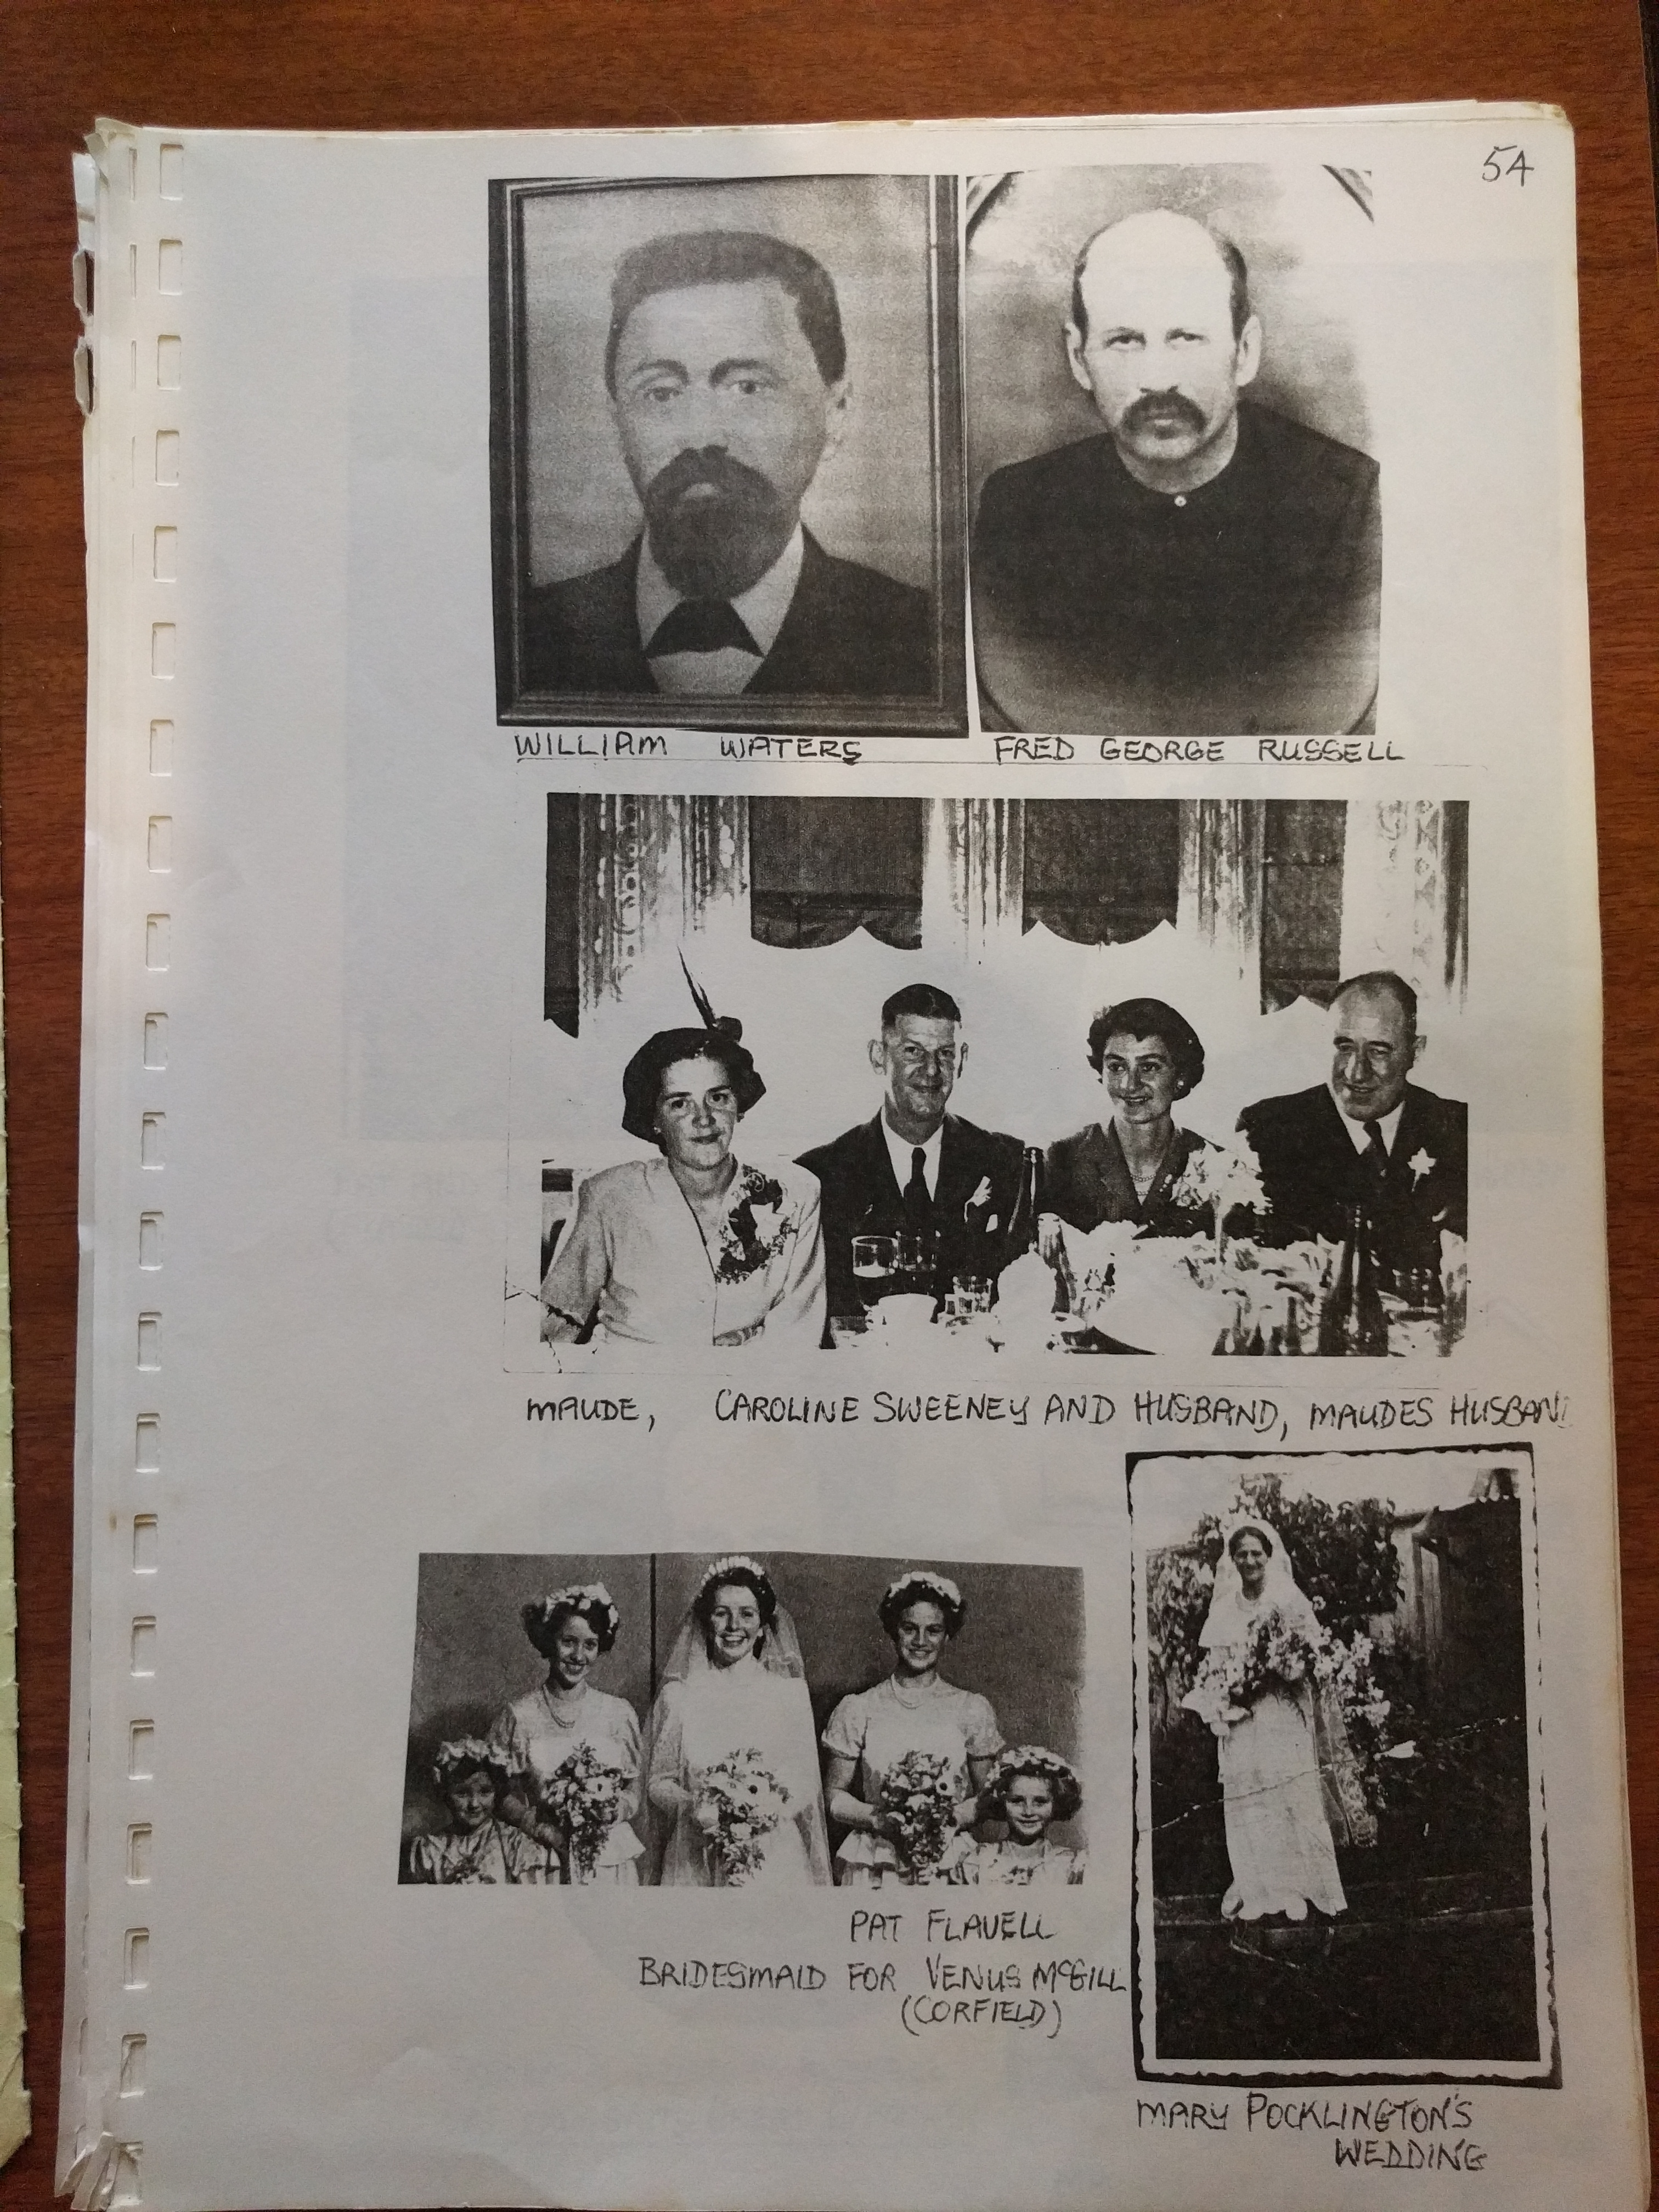 54
WILLIAM WATERS
FRED GEORGE RUSSELL
MAUDE, CAROLINE SWEENEY AND HUSBAND, MAUDES HUSBAND
PAT FLAVELL
BRIDESMAID FOR VENUS McGILL
(CORFIELD)
MARY POCKLINGTON'S
WEDDING